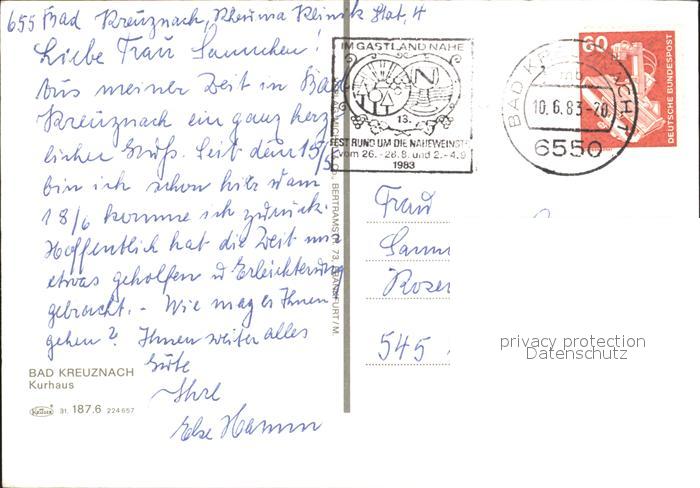 655 Bad Kreuznach, Rheuma Klinik Stat. 4
Liebe Frau Sammchen!
Aus meiner Zeit in Bad
Kreuznach ein ganz herz-
licher Gruß. Seit dem 15/5
bin ich schon hier u am
18/6 komme ich zurück.
Hoffentlich hat die Zeit mir
etwas geholfen u Erleichterung
gebracht. - Wie mag es Ihnen
gehen? Ihnen weiter alles
Gute
Ihre
Else Hamm
BAD KREUZNACH
Kurhaus
31. 187.6 224657
BERTRAMSTR. 73, FRANKFURT/M.
IM GASTLAND NAHE
N
13.
FEST RUND UM DIE NAHEWEINSTR
vom 26.-28.8. und 2.-4.9
1983
BAD KREUZNACH 1
mb
10.6.83-20
6550
60
DEUTSCHE BUNDESPOST
Frau
Samm
Rosen
545
privacy protection
Datenschutz